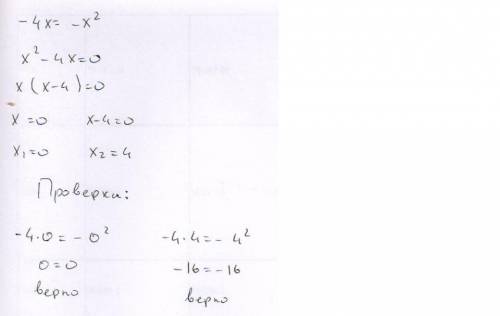 -4x = -x²
x² - 4x = 0
x (x-4) = 0
x = 0 x-4 = 0
x₁ = 0 x₂ = 4
Проверки:
-4·0 = -0² -4·4 = -4²
0 = 0 -16 = -16
верно верно